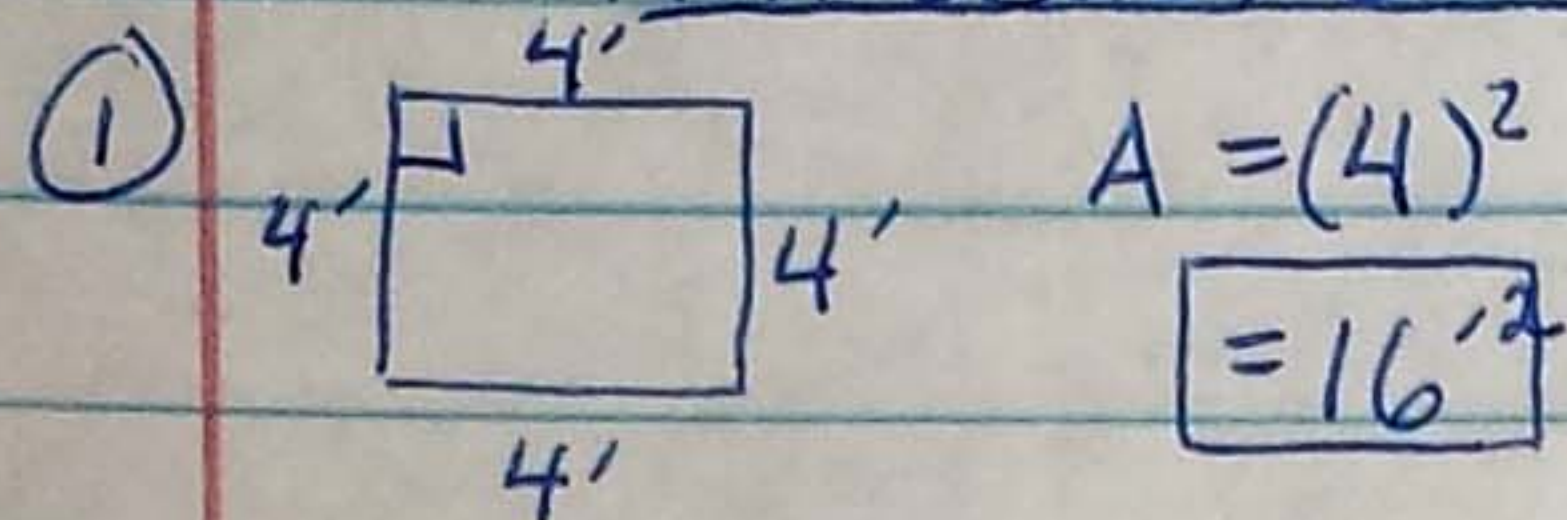 ①
4'
4'
4'
4'
A = (4)²
= 16'²